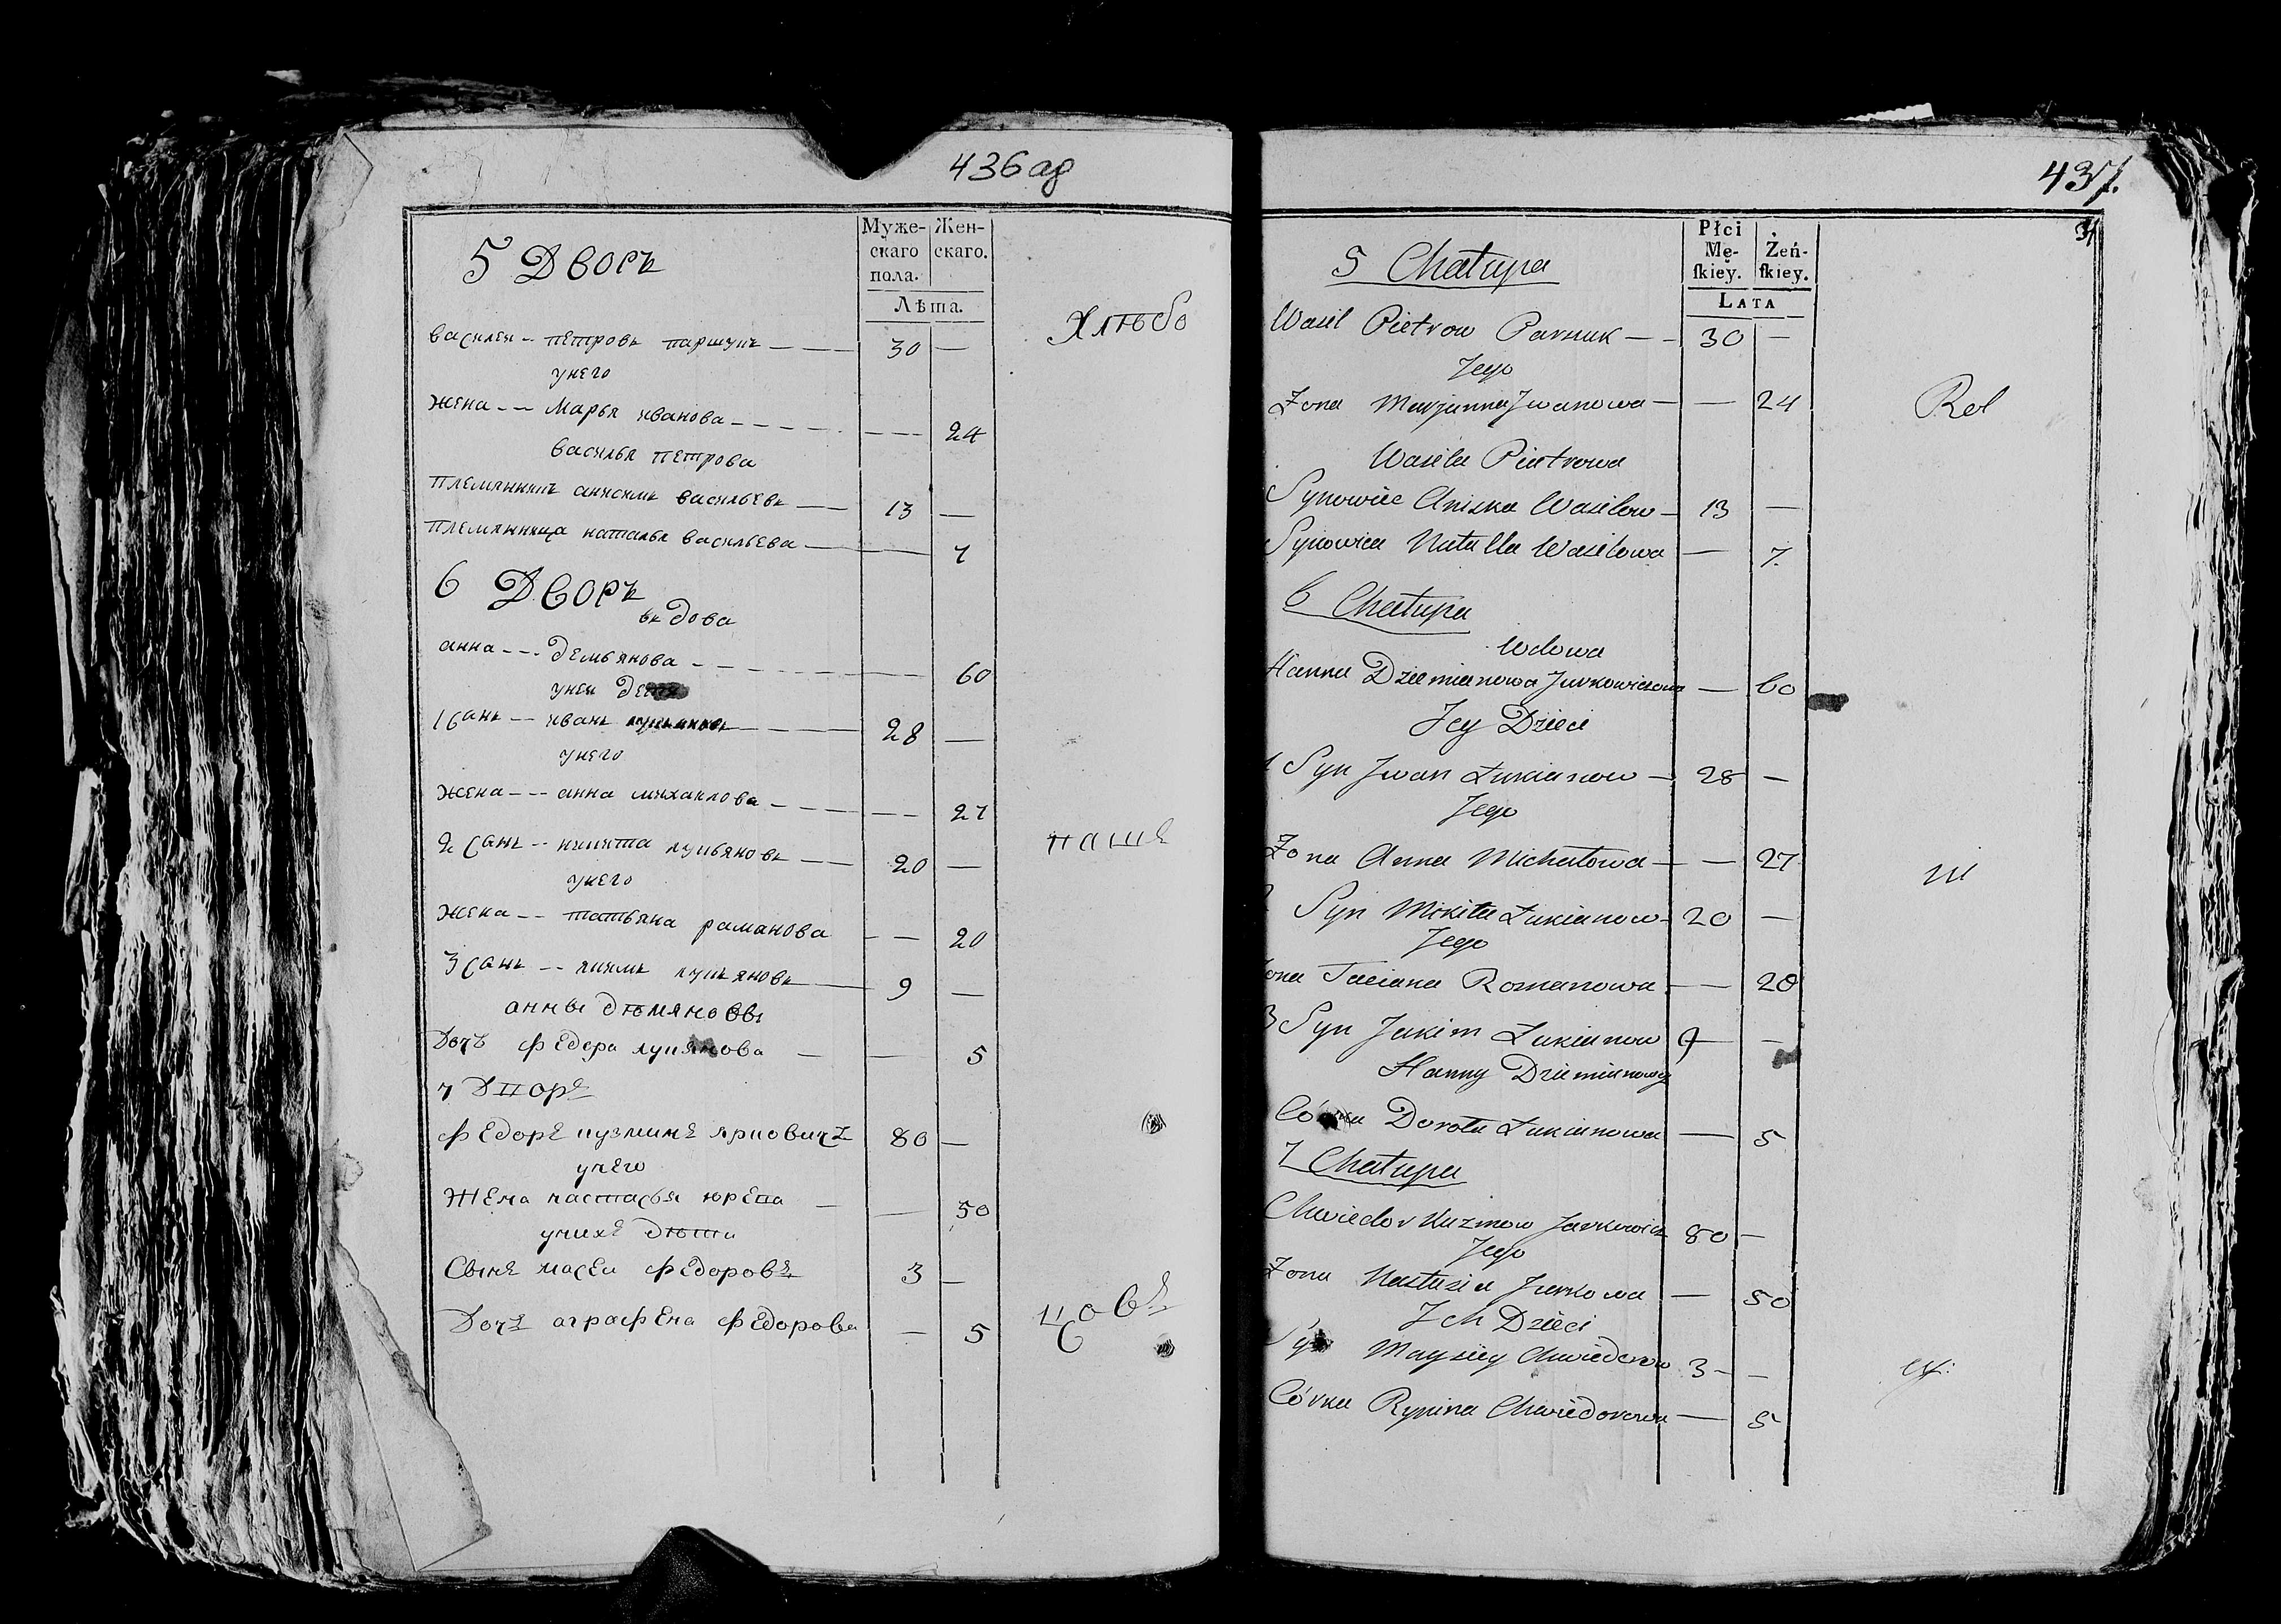 436 ад
Муже-
скаго
пола.
Жен-
скаго.
Лѣта.
5 Дворъ
Хлѣбо
василеи -- петровъ паршукъ --- 30 —
унего
жена -- Марья иванова ---- --- 24
василья петрова
племянникъ анисимъ васильевъ — 13 —
племянница наталья васильева — — 7
6 Дворъ
въдова
анна --- демьянова ---- — 60
унеи дети
1 санъ -- иванъ ---- 28 —
унего
жена --- анна михаилова --- -- 27
паше
2 санъ -- никита лукьяновъ -- 20 —
унего
жена -- татьяна раманова -- 20
3 санъ -- якимъ лукьяновъ — 9 —
анны дѣмяновы
Дочъ федора лукянова — — 5
7 Дворъ
федоръ кузминъ ярковичъ 80 —
унего
Жена настасья юрева — — 50
унихъ дѣти
Сынъ масеи федоровъ 3 —
цовъ
Дочъ аграфена федорова — 5
437.
Płci
Mę-
ſkiey.
Żeń-
ſkiey.
Lata
5 Chałupa
Wasil Pietrow Parszuk — - 30 —
Jego
Żona Maryanna Jwanowa — — 24
Rol
Wasila Pietrowa
Synowiec Aniska Wasilow — 13 —
Synowica Natalla Wasilowa — 7.
6 Chałupa
Wdowa
Hanna Dziemianowa Jurkowiczowa — 60
Jey Dzieci
1 Syn Jwan Łukianow — 28 —
Jego
Żona Anna Michałowa — — 27
ni
2 Syn Mikita Łukianow - 20 —
Jego
Żona Taciana Romanowa. — 20
3 Syn Jakim Łukianow 9 — -
Hanny Dziemianowey
Córka Dorota Łukianowa — 5
7 Chałupa
Chwiedor Kuzmow Jurkowicz 80 —
Jego
Żona Nastazia Jurkowa — 50
Jch Dzieci
Syn Maysiey Chwiedorow 3 - -
Córka Rypina Chwiedorowa — 5